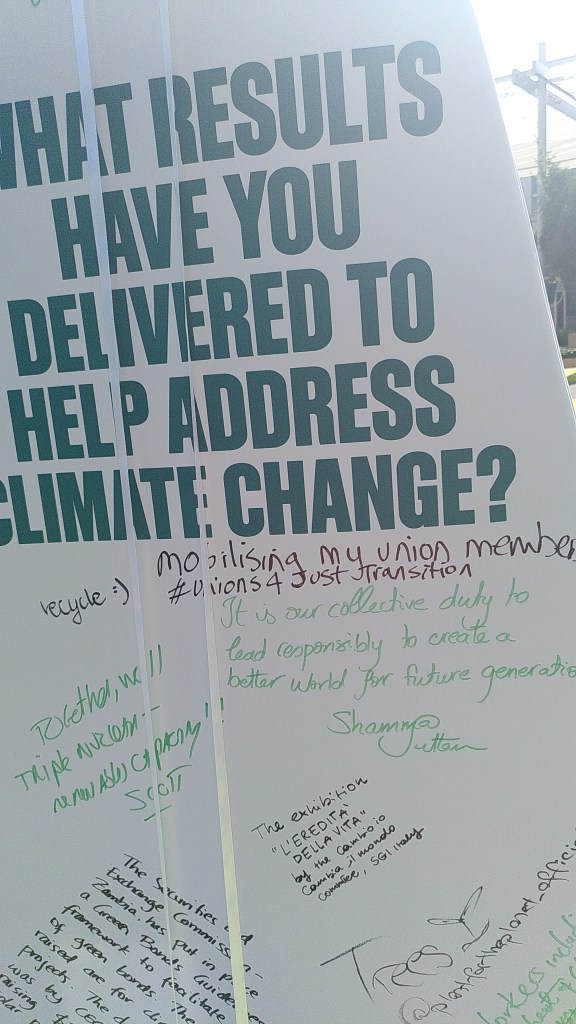 WHAT RESULTS
HAVE YOU
DELIVERED TO
HELP ADDRESS
CLIMATE CHANGE?
mobilising my union members
#unions4JustTransition
recycle :)
It is our collective duty to
lead responsibly to create a
better world for future generatio
Shamma
Together, we'll
Triple nuclear +
renewables capacity!!
SCOTT
The exhibition
"L'EREDITÀ
DELLA VITA"
by the cambio io
cambia il mondo
committee, SGI Italy
The Securities and
Exchange Commission -
Zambia has put in place
a Green Bonds Guidelines
framework to facilitate
of green bonds. The
raised are for
projects. The
was by CEC
raising
Trees
@plantfortheplanet_officia